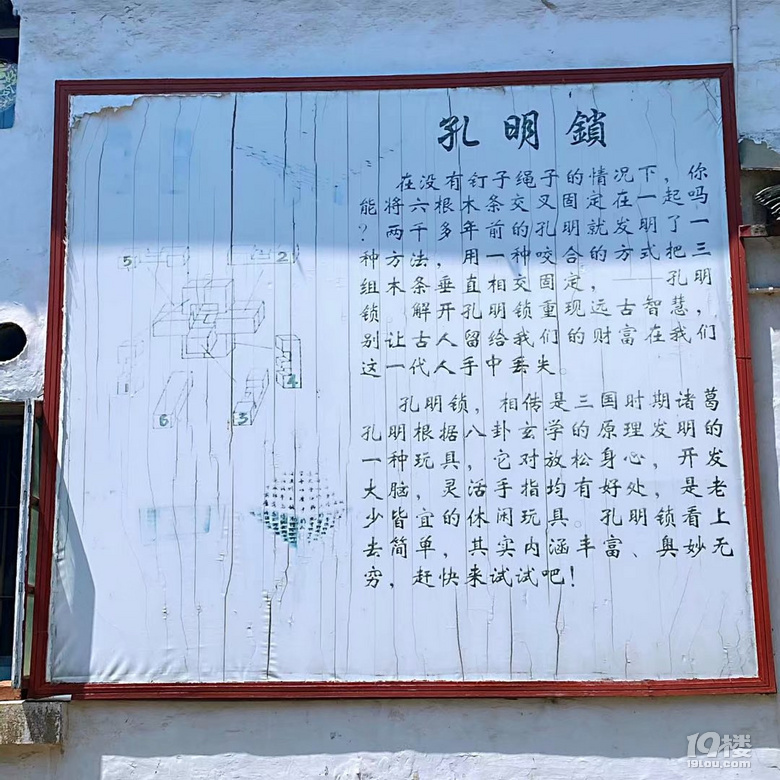 孔明鎖
在没有钉子绳子的情况下，你
能将六根木条交叉固定在一起吗
？两千多年前的孔明就发明了一
种方法，用一种咬合的方式把三
组木条垂直相交固定，——孔明
锁 解开孔明锁重现远古智慧，
别让古人留给我们的财富在我们
这一代人手中丢失。
孔明锁，相传是三国时期诸葛
孔明根据八卦玄学的原理发明的
一种玩具，它对放松身心，开发
大脑，灵活手指均有好处，是老
少皆宜的休闲玩具。孔明锁看上
去简单，其实内涵丰富、奥妙无
穷，赶快来试试吧！
5
2
4
6
3
19楼
19lou.com